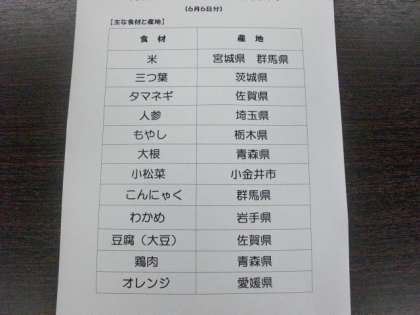 (6月6日分)
【主な食材と産地】
食 材 産 地
米 宮城県 群馬県
三つ葉 茨城県
タマネギ 佐賀県
人参 埼玉県
もやし 栃木県
大根 青森県
小松菜 小金井市
こんにゃく 群馬県
わかめ 岩手県
豆腐（大豆） 佐賀県
鶏肉 青森県
オレンジ 愛媛県